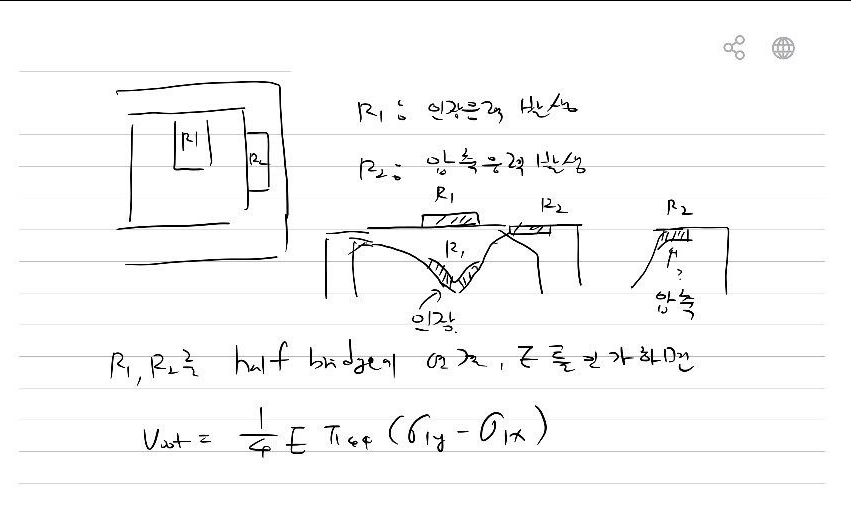 R1 : 인장응력 발생
R2 : 압축응력 발생
R1
R2
R1
R2
R2
R1
?
인장
압축
R1, R2를 half bridge에 연결, E를 인가하면
Vout = 1/4 E π44 (σ1y - σ1x)